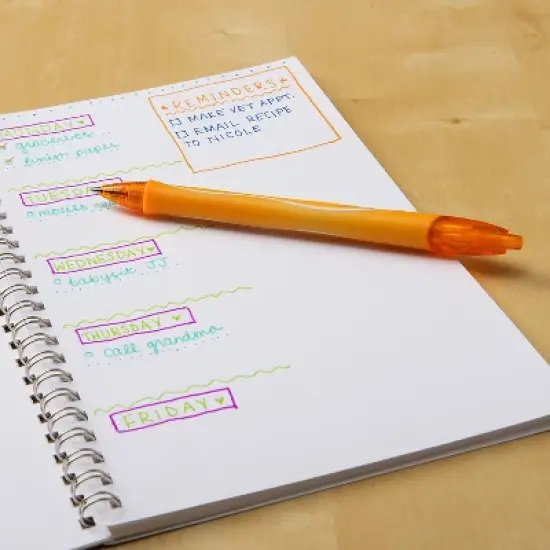 REMINDERS
MAKE VET APPT.
EMAIL RECIPE
TO NICOLE
MONDAY
groceries
finish paper
TUESDAY
movies
WEDNESDAY
babysit JJ
THURSDAY
call grandma
FRIDAY